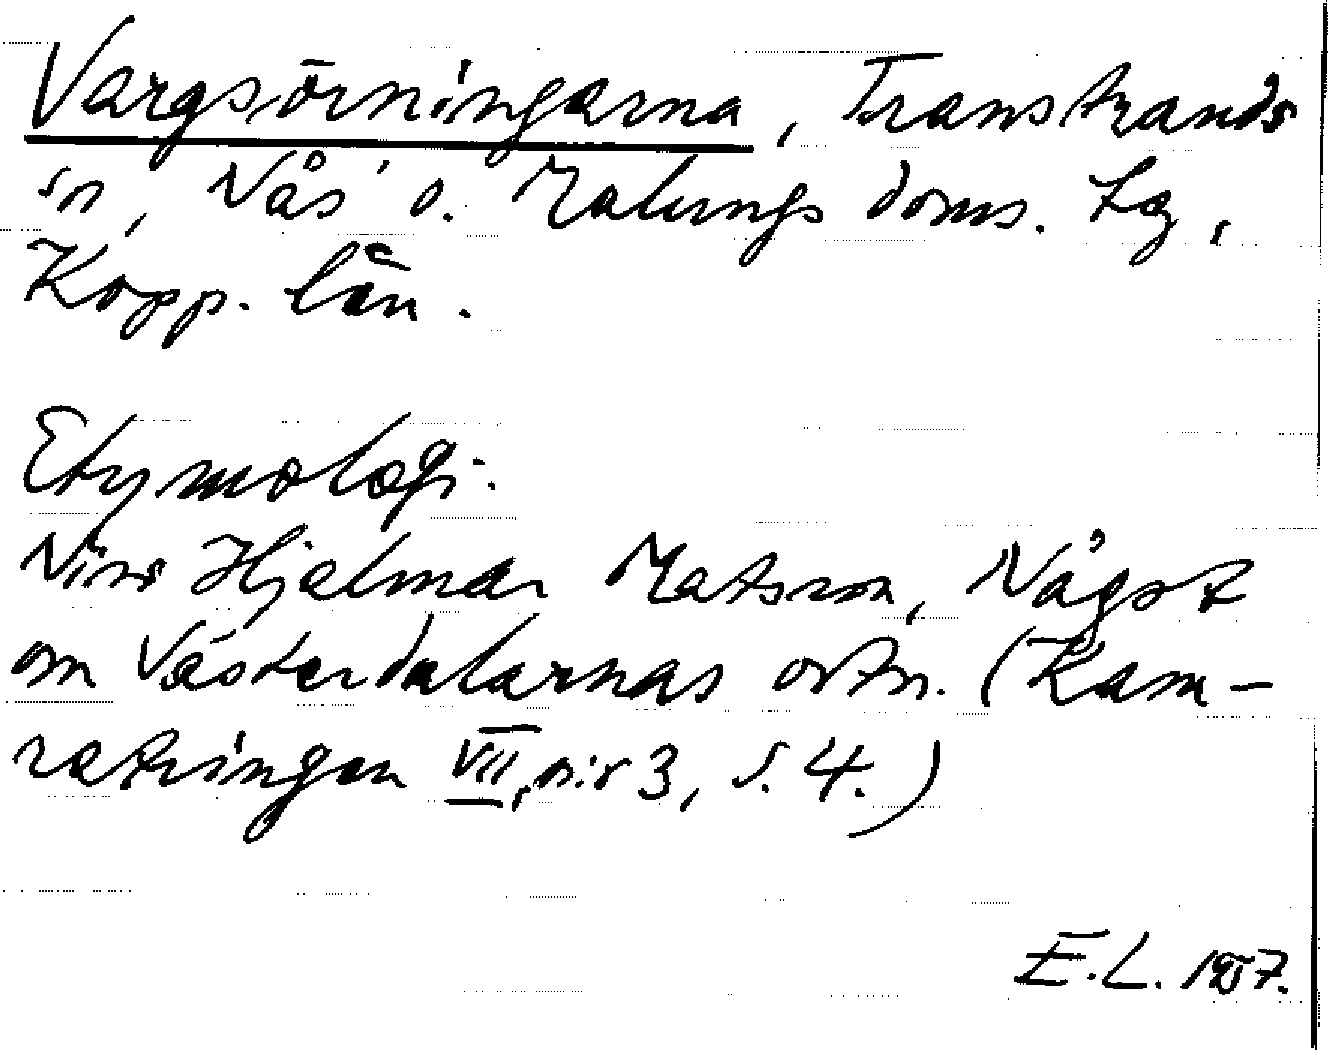 Vargsörningarna, Transtrands
sn, Nås o. Malungs doms. Lg,
Kopp. län.
Etymologi.
Hjalmar Matsson, Något
om Västerdalarnas ortn. (Kam-
ratringen VII, n:r 3, s. 4.)
E.L. 1957.